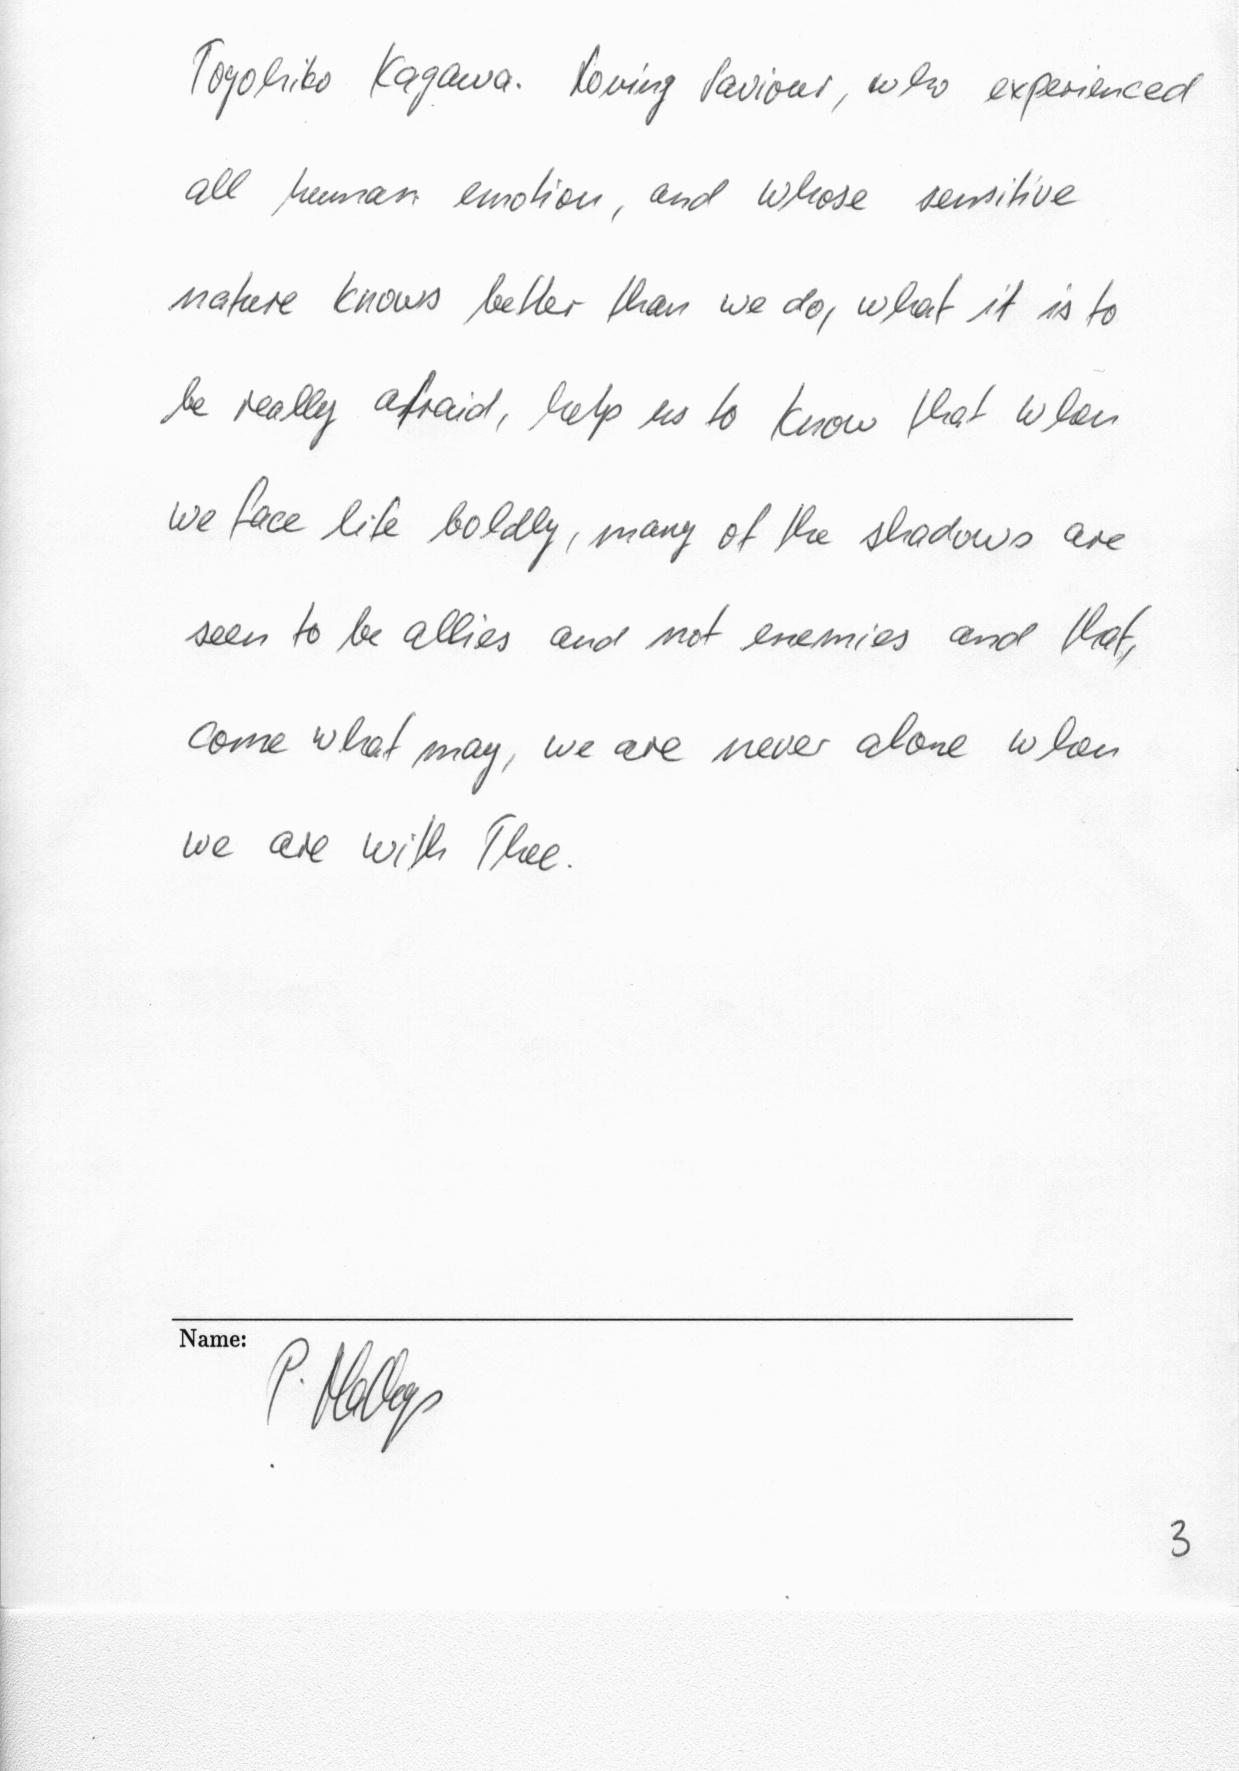 Toyohiko Kagawa. Loving Saviour, who experienced
all human emotion, and whose sensitive
nature knows better than we do, what it is to
be really afraid, help us to know that when
we face life boldly, many of the shadows are
seen to be allies and not enemies and that,
come what may, we are never alone when
we are with Thee.
Name:
P.
3